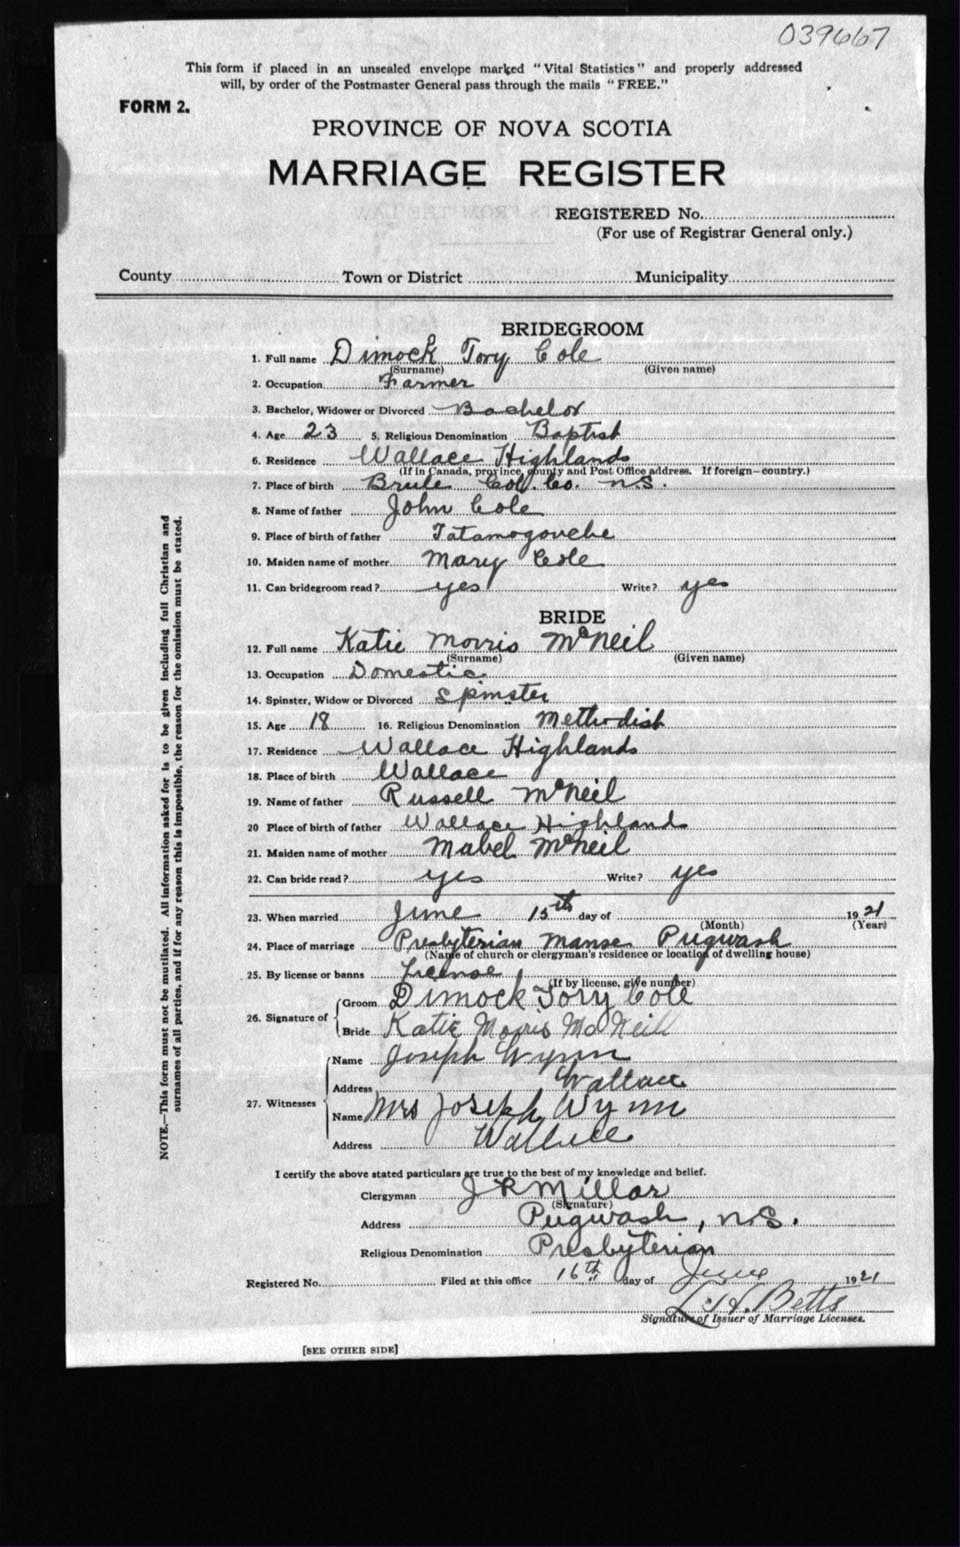 039667
This form if placed in an unsealed envelope marked "Vital Statistics" and properly addressed
will, by order of the Postmaster General pass through the mails "FREE."
FORM 2.
PROVINCE OF NOVA SCOTIA
MARRIAGE REGISTER
REGISTERED No.
(For use of Registrar General only.)
County Town or District Municipality
BRIDEGROOM
1. Full name Dimock Tory Cole
(Surname) (Given name)
2. Occupation Farmer
3. Bachelor, Widower or Divorced Bachelor
4. Age 23 5. Religious Denomination Baptist
6. Residence Wallace Highlands
(If in Canada, province, county and Post Office address. If foreign—country.)
7. Place of birth Brule Col. Co. N.S.
8. Name of father John Cole
9. Place of birth of father Tatamagouche
10. Maiden name of mother Mary Cole
11. Can bridegroom read? yes Write? yes
BRIDE
12. Full name Katie Morris McNeil
(Surname) (Given name)
13. Occupation Domestic
14. Spinster, Widow or Divorced Spinster
15. Age 18 16. Religious Denomination Methodist
17. Residence Wallace Highlands
18. Place of birth Wallace
19. Name of father Russell McNeil
20 Place of birth of father Wallace Highlands
21. Maiden name of mother Mabel McNeil
22. Can bride read? yes Write? yes
23. When married June 15th day of 1921
(Month) (Year)
24. Place of marriage Presbyterian Manse Pugwash
(Name of church or clergyman's residence or location of dwelling house)
25. By license or banns License
(If by license, give number)
26. Signature of Groom Dimock Tory Cole
Bride Katie Morris McNeill
27. Witnesses Name Joseph Wynn
Address Wallace
Name Mrs Joseph Wynn
Address Wallace
I certify the above stated particulars are true to the best of my knowledge and belief.
Clergyman J R Millar
(Signature)
Address Pugwash, N.S.
Religious Denomination Presbyterian
Registered No. Filed at this office 16th day of June 1921
Betts
Signature of Issuer of Marriage Licenses.
[SEE OTHER SIDE]
NOTE.—This form must not be mutilated. All information asked for is to be given including full Christian and
surnames of all parties, and if for any reason this is impossible, the reason for the omission must be stated.